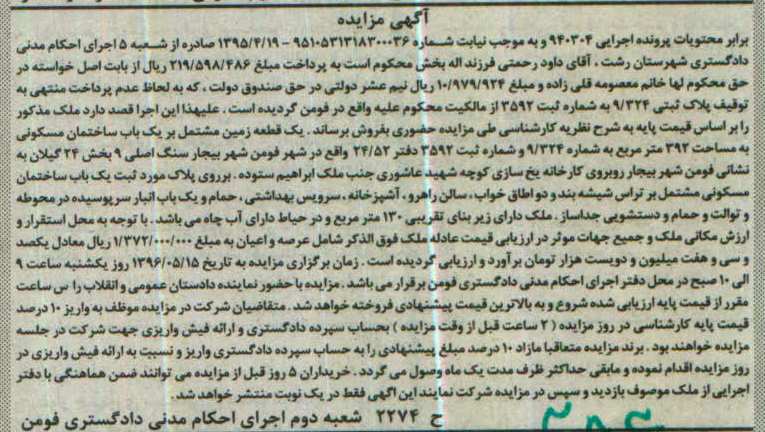 آگهی مزایده
برابر محتویات پرونده اجرایی ۹۴۰۳۰۴ و به موجب نیابت شماره ۹۵۱۰۵۳۱۳۱۸۳۰۰۰۳۶ - ۱۳۹۵/۴/۱۹ صادره از شعبه ۵ اجرای احکام مدنی
دادگستری شهرستان رشت ، آقای داود رحمتی فرزند اله بخش محکوم است به پرداخت مبلغ ۲۱۹/۵۹۸/۴۸۶ ریال از بابت اصل خواسته در
حق محکوم لها خانم معصومه قلی زاده و مبلغ ۱۰/۹۷۹/۹۲۴ ریال نیم عشر دولتی در حق صندوق دولت ، که به لحاظ عدم پرداخت منتهی به
توقیف پلاک ثبتی ۹/۳۲۴ به شماره ثبت ۳۵۹۲ از مالکیت محکوم علیه واقع در فومن گردیده است . علیهذا این اجرا قصد دارد ملک مذکور
را بر اساس قیمت پایه به شرح نظریه کارشناسی طی مزایده حضوری بفروش برساند . یک قطعه زمین مشتمل بر یک باب ساختمان مسکونی
به مساحت ۳۹۲ متر مربع به شماره ۹/۳۲۴ و شماره ثبت ۳۵۹۲ دفتر ۲۴/۵۲ واقع در شهر فومن شهر بیجار سنگ اصلی ۹ بخش ۲۴ گیلان به
نشانی فومن شهر بیجار روبروی کارخانه یخ سازی کوچه شهید عاشوری جنب ملک ابراهیم ستوده . برروی پلاک مورد ثبت یک باب ساختمان
مسکونی مشتمل بر تراس شیشه بند و دو اطاق خواب ، سالن راهرو ، آشپزخانه ، سرویس بهداشتی ، حمام و یک باب انبار سرپوسیده در محوطه
و توالت و حمام و دستشویی جداساز . ملک دارای زیر بنای تقریبی ۱۳۰ متر مربع و در حیاط دارای آب چاه می باشد . با توجه به محل استقرار و
ارزش مکانی ملک و جمیع جهات موثر در ارزیابی قیمت عادله ملک فوق الذکر شامل عرصه و اعیان به مبلغ ۱/۳۷۲/۰۰۰/۰۰۰ ریال معادل یکصد
و سی و هفت میلیون و دویست هزار تومان برآورد و ارزیابی گردیده است . زمان برگزاری مزایده به تاریخ ۱۳۹۶/۰۵/۱۵ روز یکشنبه ساعت ۹
الی ۱۰ صبح در محل دفتر اجرای احکام مدنی دادگستری فومن برقرار می باشد . مزایده با حضور نماینده دادستان عمومی و انقلاب را س ساعت
مقرر از قیمت پایه ارزیابی شده شروع و به بالاترین قیمت پیشنهادی فروخته خواهد شد . متقاضیان شرکت در مزایده موظف به واریز ۱۰ درصد
قیمت پایه کارشناسی در روز مزایده ( ۲ ساعت قبل از وقت مزایده ) بحساب سپرده دادگستری و ارائه فیش واریزی جهت شرکت در جلسه
مزایده خواهند بود . برنده مزایده متعاقبا مازاد ۱۰ درصد مبلغ پیشنهادی را به حساب سپرده دادگستری واریز و نسبت به ارائه فیش واریزی در
روز مزایده اقدام نموده و مابقی حداکثر ظرف مدت یک ماه وصول می گردد . خریداران ۵ روز قبل از مزایده می توانند ضمن هماهنگی با دفتر
اجرایی از ملک موصوف بازدید و سپس در مزایده شرکت نمایند این آگهی فقط در یک نوبت منتشر خواهد شد .
ح ۲۲۷۴ شعبه دوم اجرای احکام مدنی دادگستری فومن